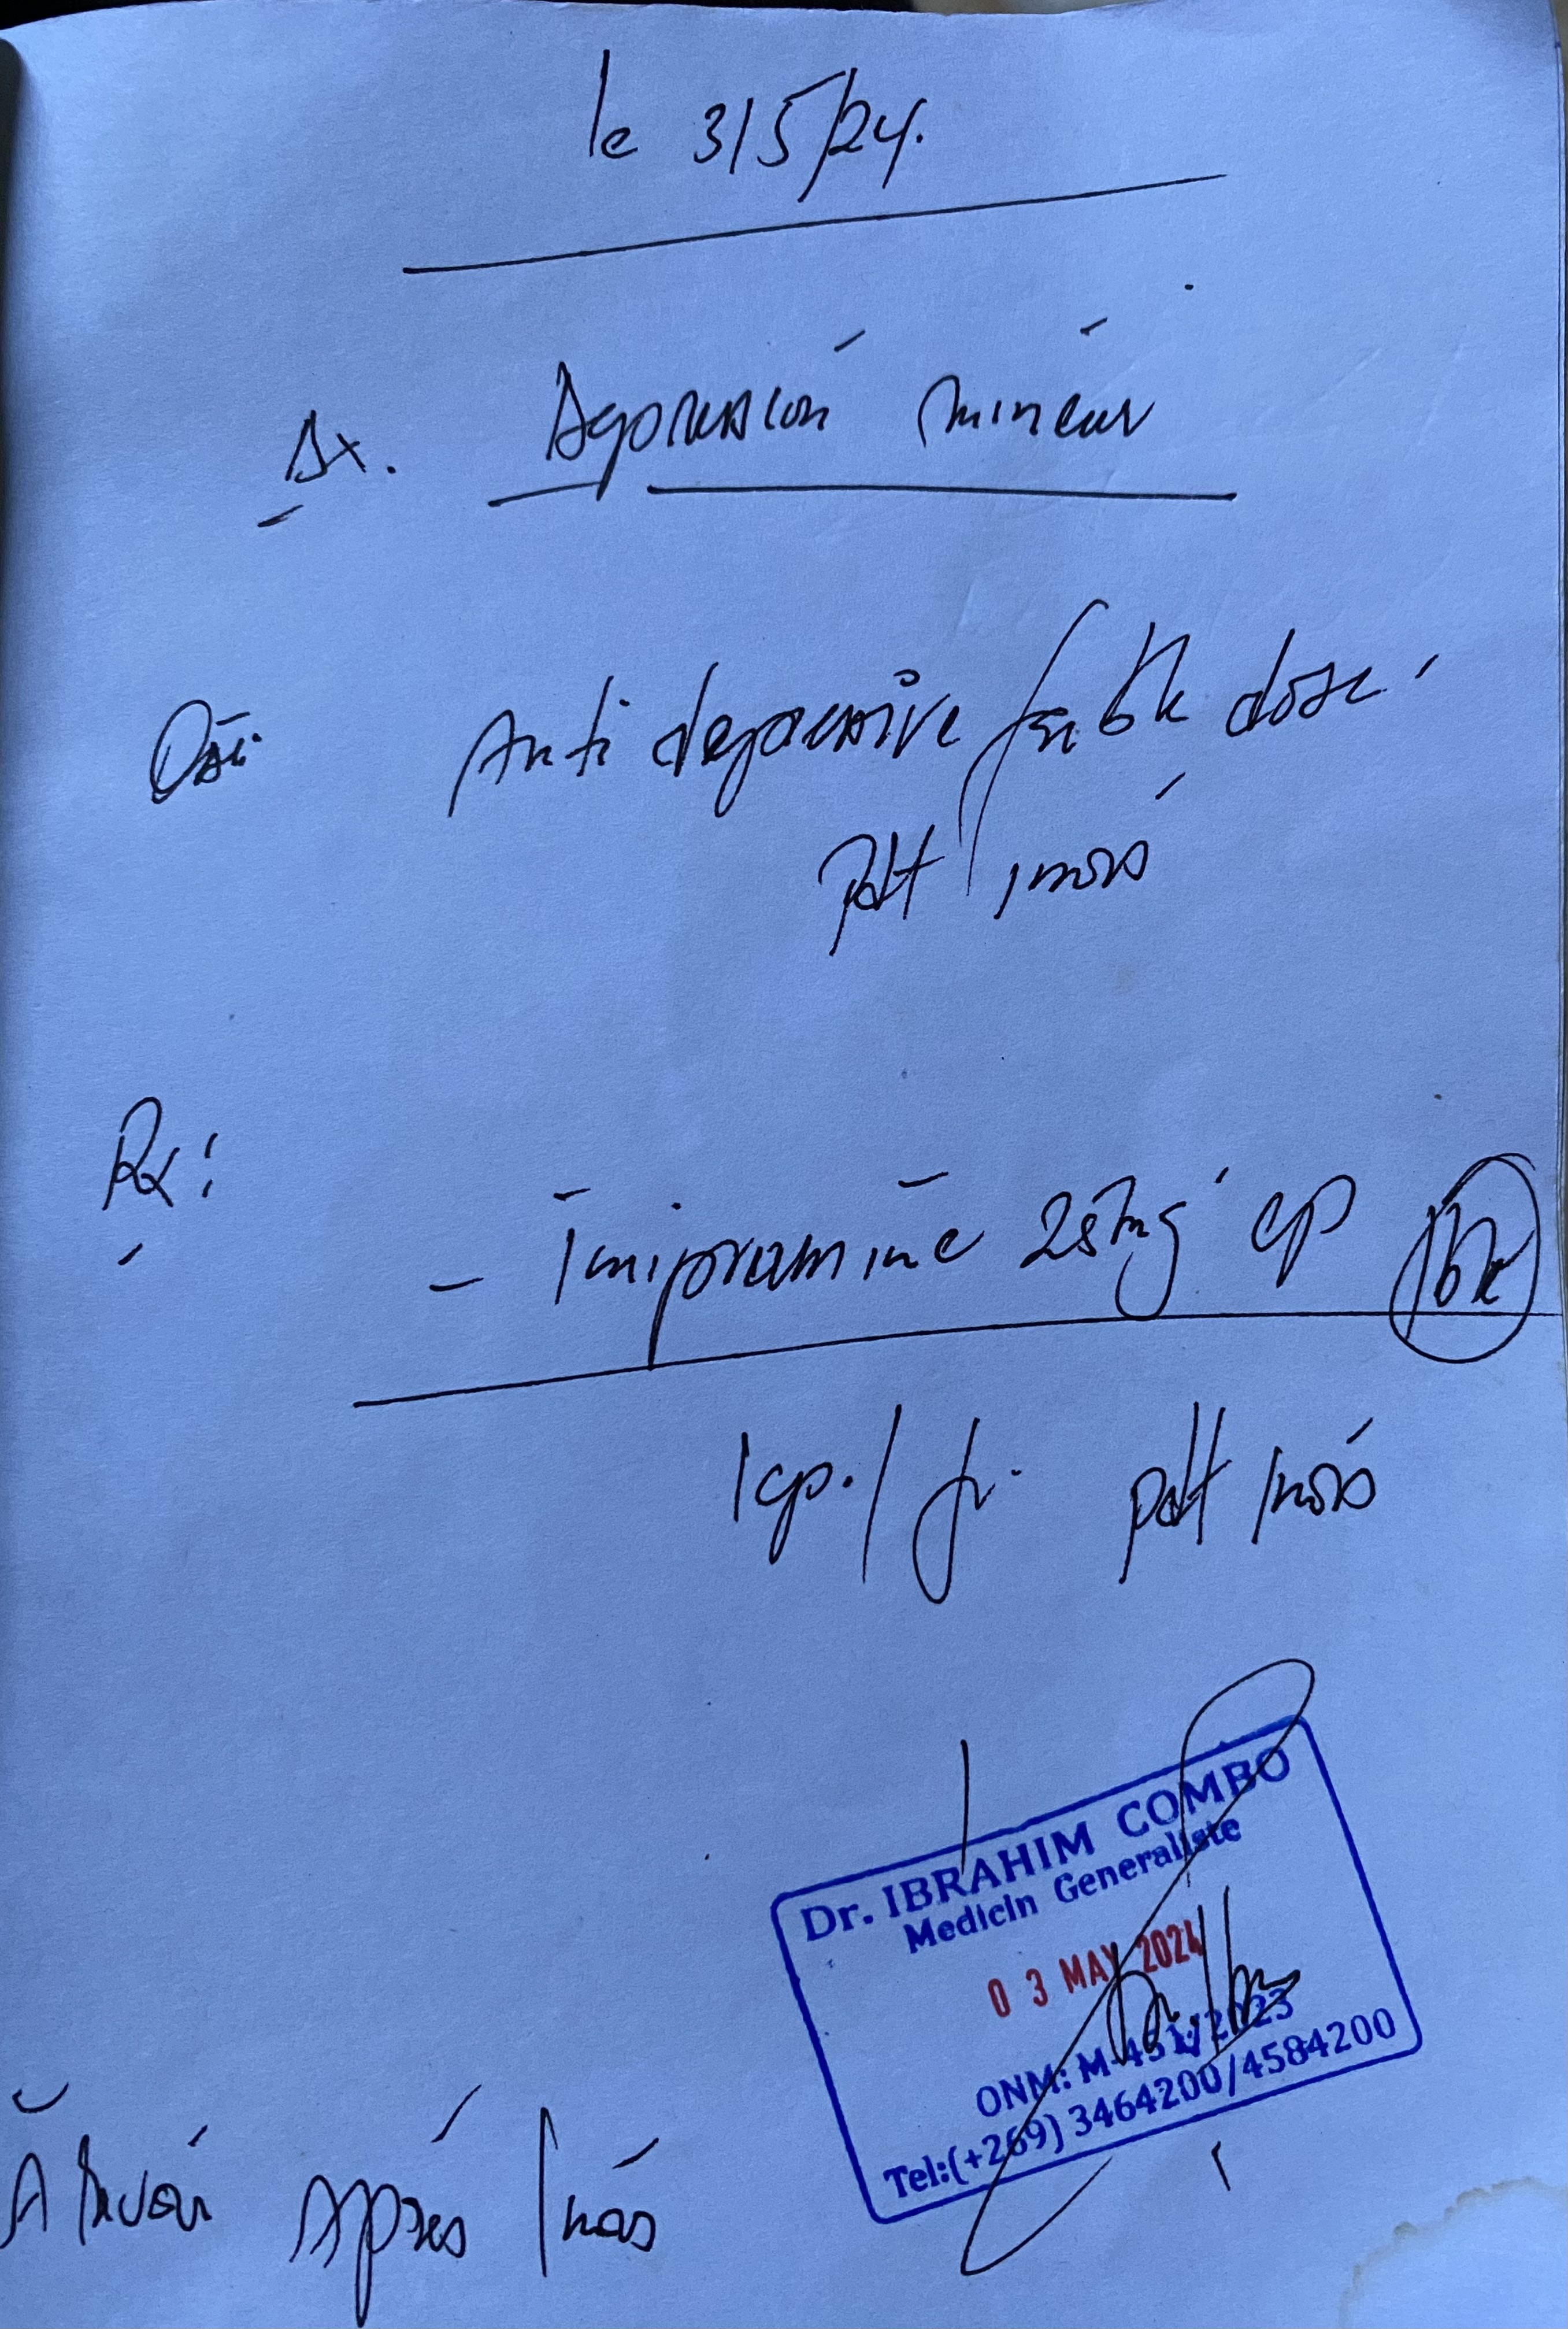 le 3/5/24.
Dx. Depression mineur
Anti depressive faible dose
pdt 1 mois
Rx:
- Imipramine 25mg cp 1bte
1cp./jr. pdt 1mois
Dr. IBRAHIM COMBO
Medicin Generaliste
03 MAY 2024
ONM: M-451/2023
Tel:(+269) 3464200/4584200
A revoir Après 1 mois